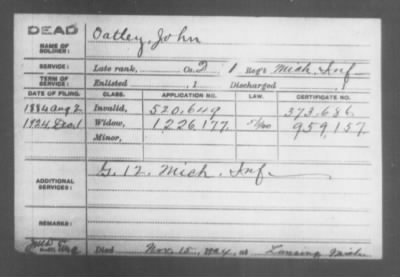 DEAD
NAME OF SOLDIER: Oatley, John
SERVICE: Late rank, Co. 2, 1 Reg't Mich. Inf.
TERM OF SERVICE: Enlisted , 1 Discharged , 1
DATE OF FILING. CLASS. APPLICATION NO. LAW. CERTIFICATE NO.
1884 Aug 2 Invalid, 520,649 373,686
1924 Dec 1 Widow, 1,226,177 959,157
Minor,
ADDITIONAL SERVICES: G. 12. Mich. Inf.
REMARKS:
Died Nov. 15, 1924, at Lansing Mich